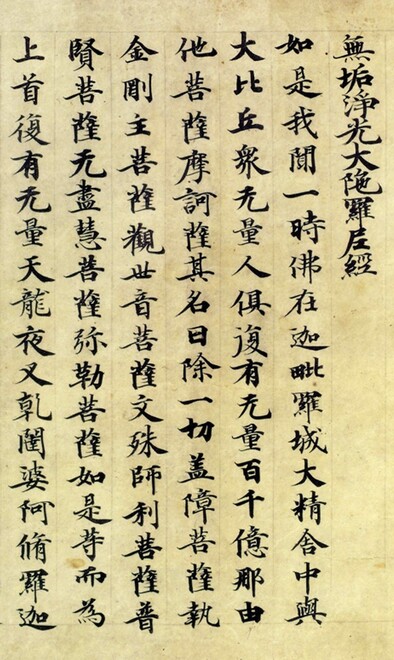 無垢淨光大陁羅尼經
如是我聞一時佛在迦毗羅城大精舍中與
大比丘衆无量人俱復有无量百千億那由
他菩薩摩訶薩其名曰除一切盖障菩薩執
金剛主菩薩觀世音菩薩文殊師利菩薩普
賢菩薩无盡慧菩薩弥勒菩薩如是䓁而為
上首復有无量天龍夜叉乹闥婆阿脩羅迦